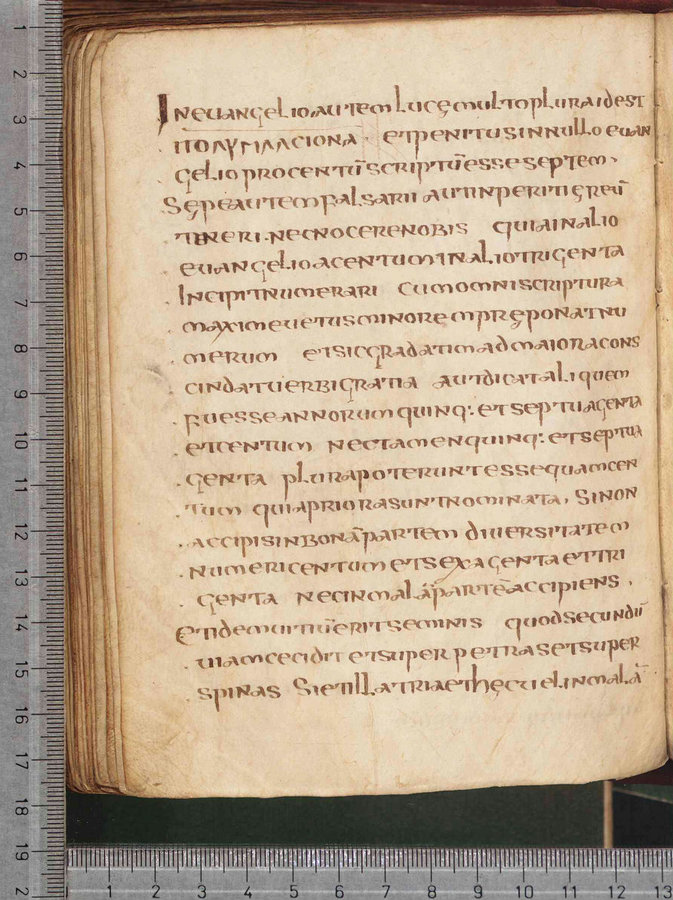 In euangelio autem lucę multo plura id est
ΠΟΛΥΠΛΑCΙΟΝΑ · et penitus in nullo euan
gelio pro centū scriptū esse septem ·
Sępe autem falsarii aut inperiti gręcū
teneri · nec nocere nobis quia in alio
euangelio a centum in alio trigenta
Incipit numerari cum omni scriptura
maxime uetus minorem pręponat nu
merum et sic gradatim ad maiora cons
cindat uerbi gratia aut dicat aliquem
fuesse annorum quinq: et septuagenta
et centum nec tamen quinq: et septua
genta plura poterunt esse quam cen
tum quia priora sunt nominata , Si non
accipis in bonā partem diuersitatem
numeri centum et sexagenta et tri
genta nec in malā partē accipiens ,
Et idem uitiū erit seminis quod secundū
uiam cecidit et super petras et super
spinas Si et illa tria et hęc uel in malā